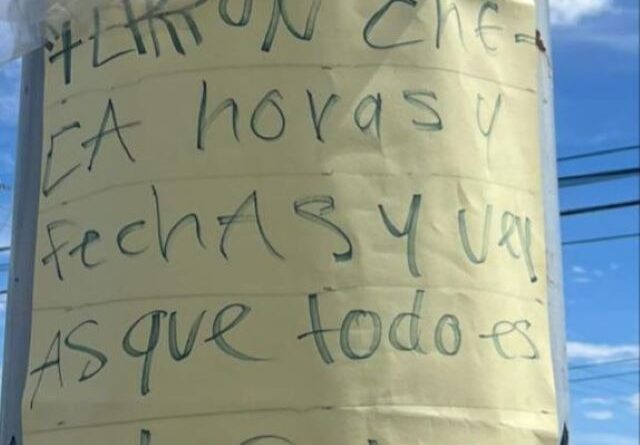 che-
CA horas y
FechAS y ver
AS que todo es